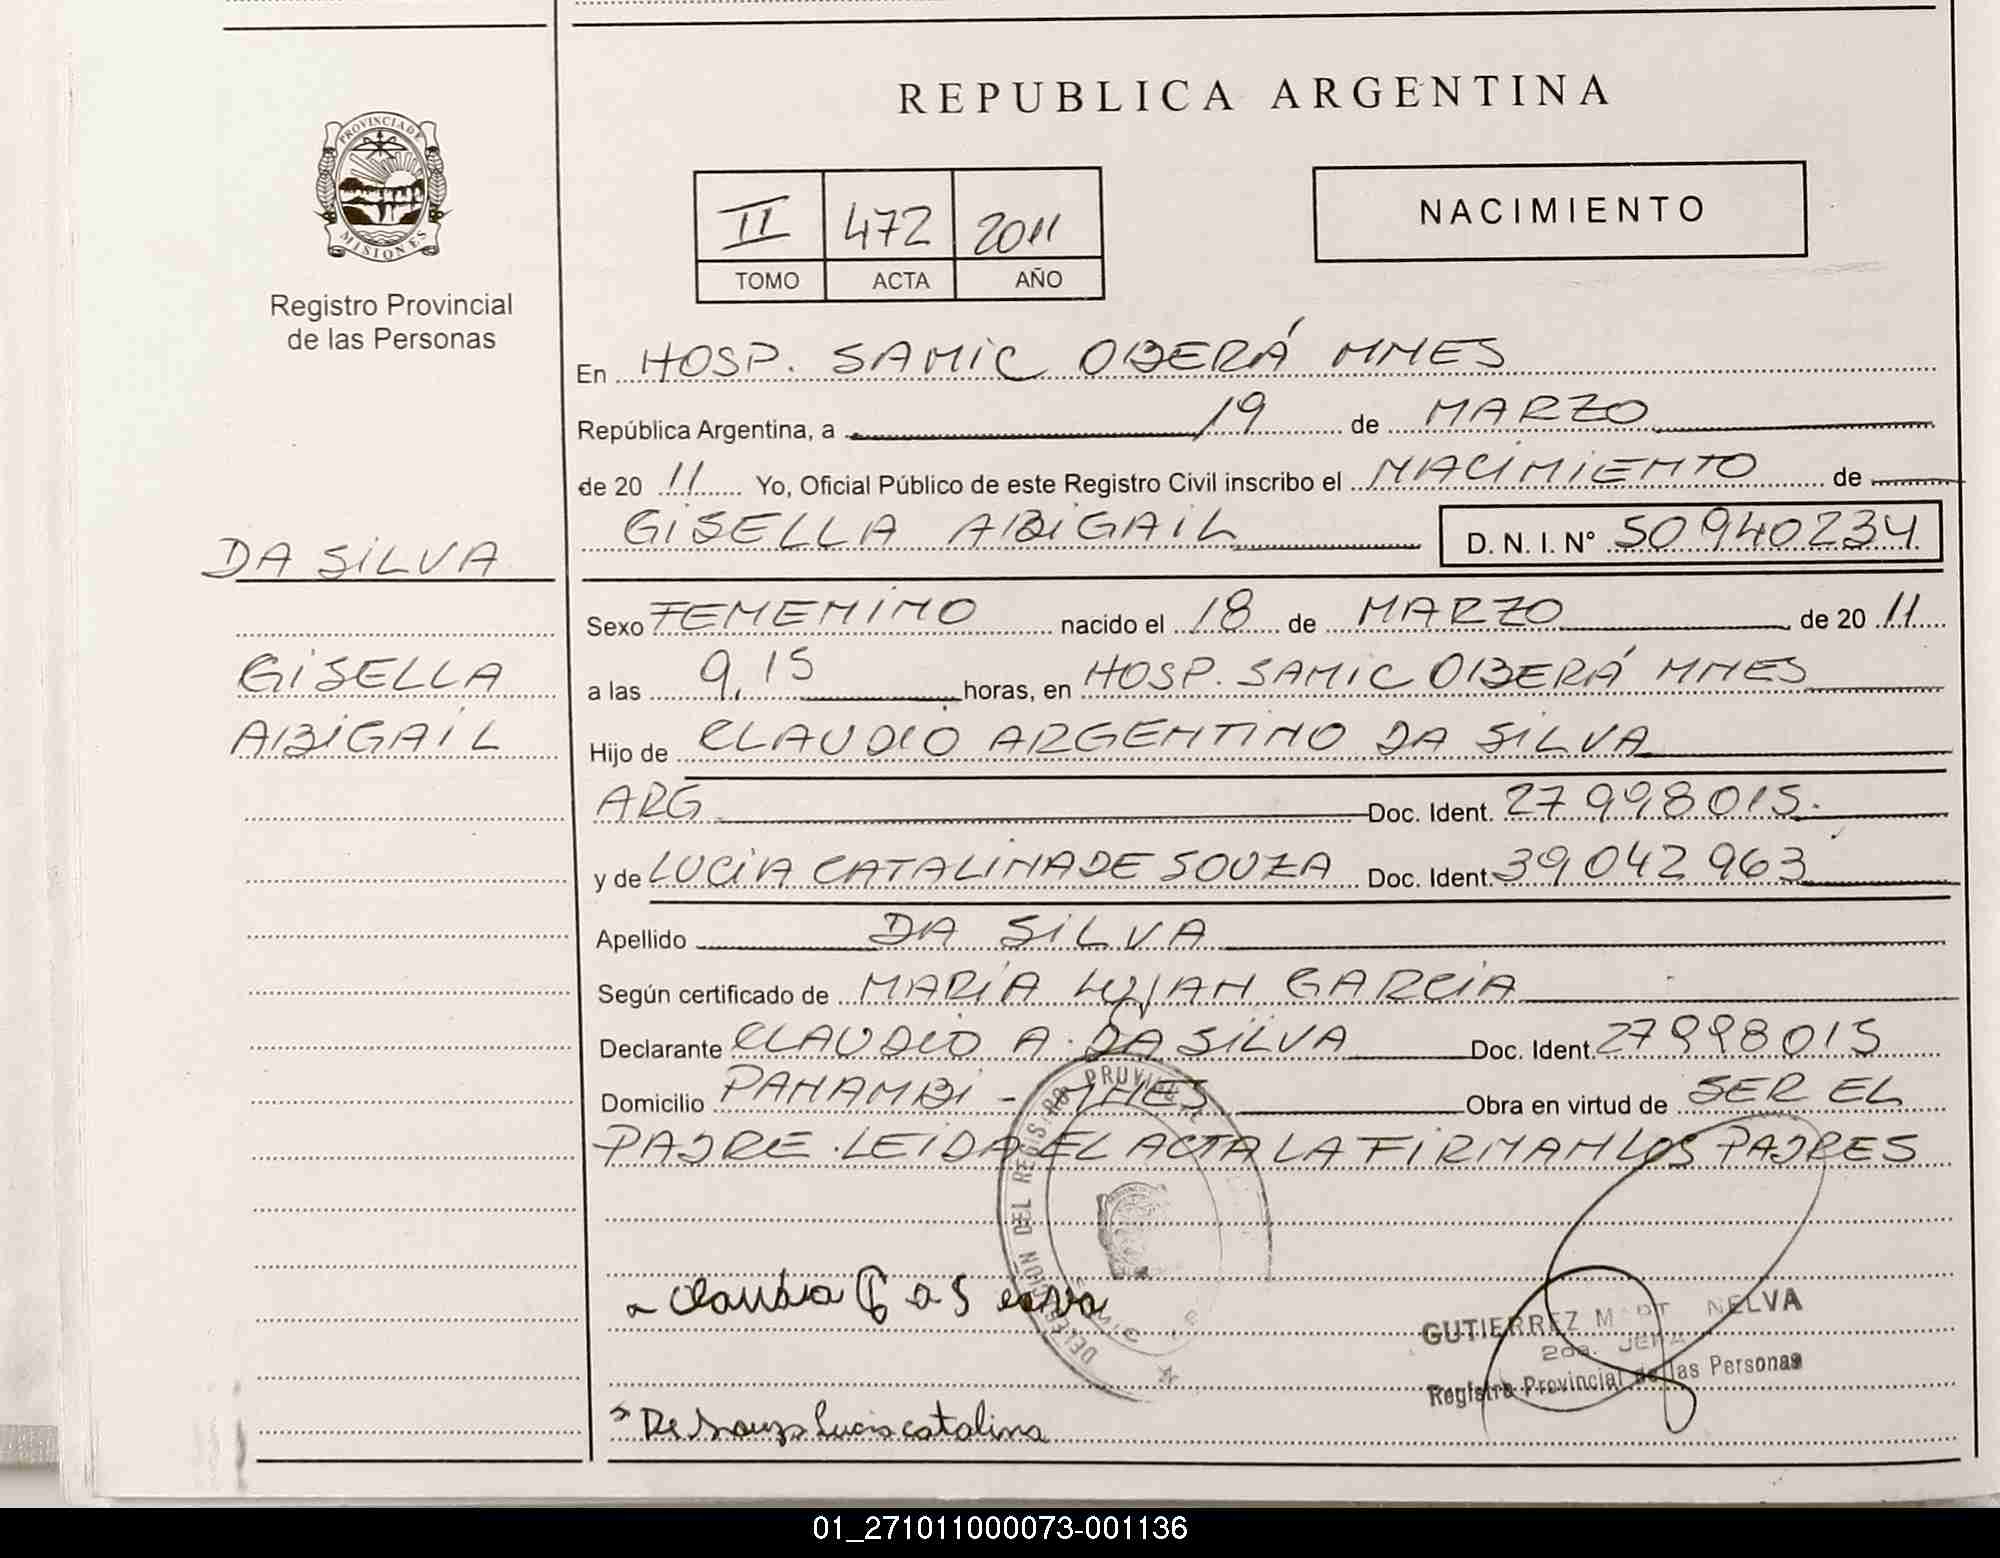 REPUBLICA ARGENTINA
PROVINCIA DE
MISIONES
Registro Provincial
de las Personas
II 472 2011
TOMO ACTA AÑO
NACIMIENTO
En HOSP. SAMIC OBERÁ MNES
República Argentina, a 19 de MARZO
de 20 11 Yo, Oficial Público de este Registro Civil inscribo el NACIMIENTO de
GISELLA ABIGAIL D. N. I. N° 50940234
DA SILVA
GISELLA
ABIGAIL
Sexo FEMENINO nacido el 18 de MARZO de 20 11
a las 9,15 horas, en HOSP. SAMIC OBERÁ MNES
Hijo de CLAUDIO ARGENTINO DA SILVA
ARG Doc. Ident. 27998015.
y de LUCIA CATALINA DE SOUZA Doc. Ident. 39042963
Apellido DA SILVA
Según certificado de MARÍA LUJAN GARCIA
Declarante CLAUDIO A. DA SILVA Doc. Ident. 27998015
Domicilio PANAMBI - MNES Obra en virtud de SER EL
PADRE. LEIDA EL ACTA LA FIRMAN LOS PADRES
DEL REGISTRO
GUTIERREZ NELVA
2da. JEFA
Registro Provincial de las Personas
De Souza Lucia catalina
01_271011000073-001136